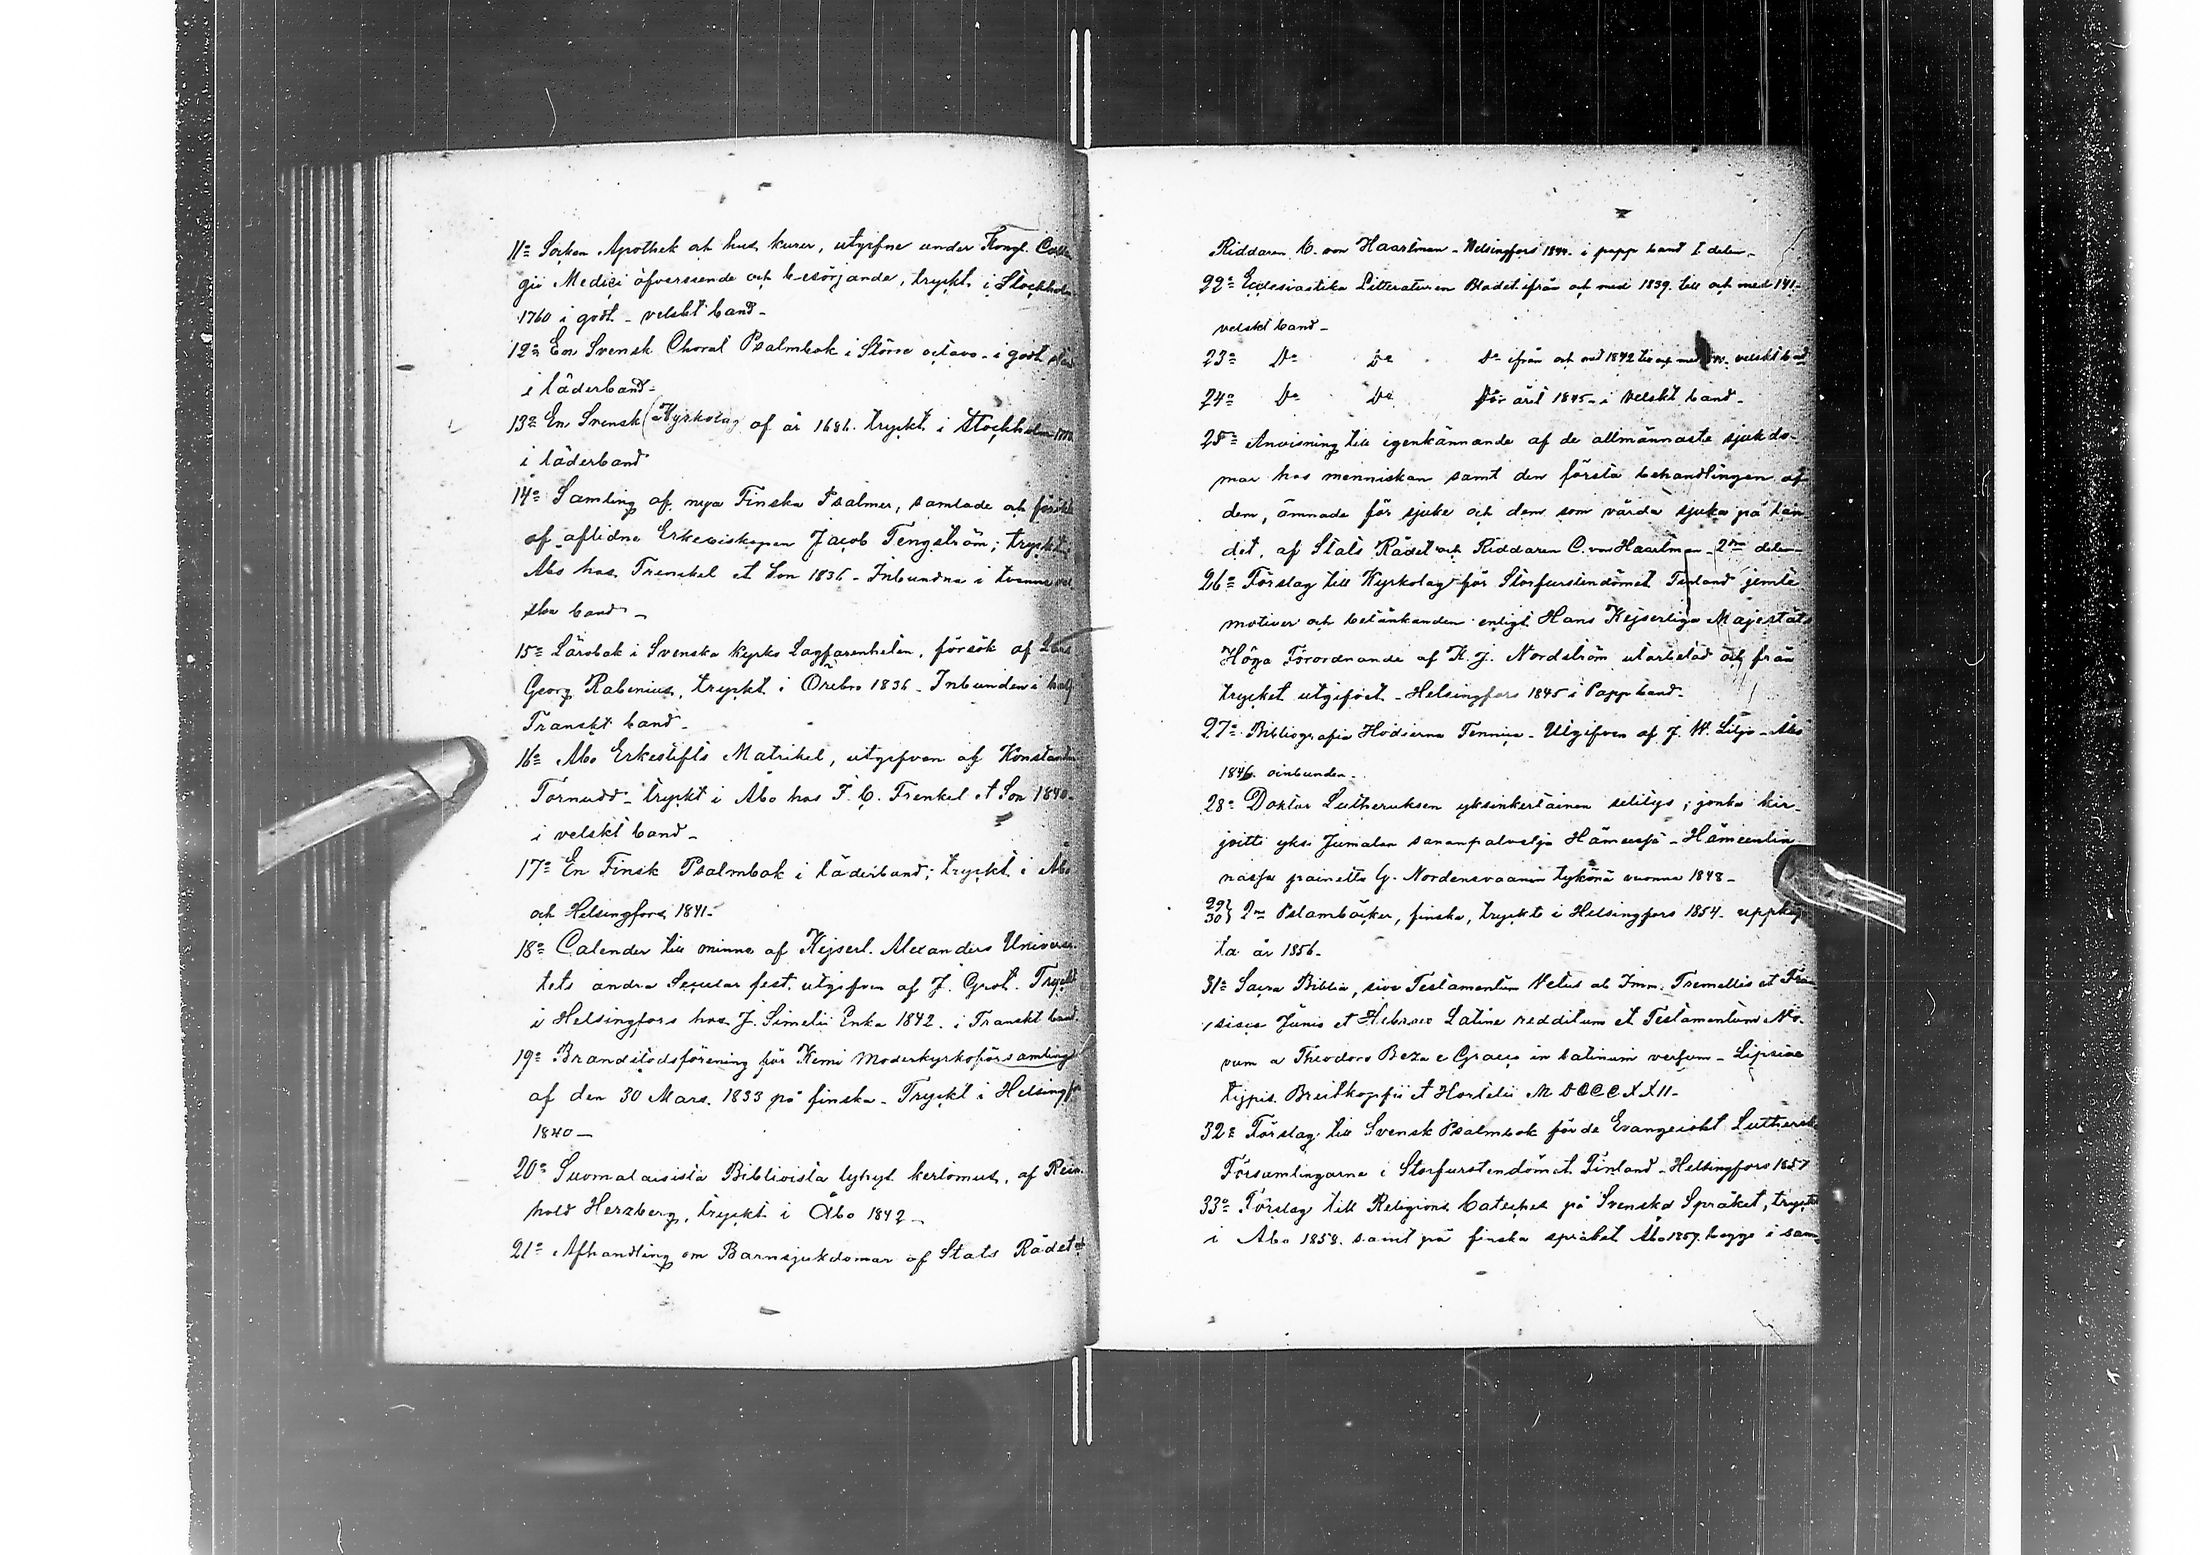 11= Socken Apothek och hus kurer, utgifne under Kongl. Colle
gii Medici öfverseende och besörjande, tryckt i Stockholm
1760 i godt velskt band-
12= En Svensk Choral Psalmbok i Större octavo - i godt
i läderband-
13= En Svensk Kyrkolag af år 1686. tryckt i Stockholm
i läderband
14= Samling af nya Finska Psalmer, samlade och
af aflidne Erkebiskopen Jacob Tengström; tryckt
Åbo hos Frenckel et Son 1836 - Inbundna i tvenne vel
ska band -
15= Lärobok i Svenska Kyrko Lagfarenheten, försök af Lars
Georg Rabenius, tryckt i Örebro 1836 - Inbunden i half
Franskt band -
16= Åbo Erkestifts Matrikel, utgifven af Konstantin
Tornudd - tryckt i Åbo hos J. C. Frenkel et Son 1840-
i velskt band -
17= En Finsk Psalmbok i läderband; tryckt i Åbo
och Helsingfors 1841-
18= Calender till minne af Kejserl. Alexanders Universi
tets andra Secular fest. utgifven af J. Grot. Tryckt
i Helsingfors hos J. Simelii Enka 1842. i Franskt band.
19= Brandstodsförening för Kemi Moderkyrkoförsamling
af den 30 Mars. 1833 på finska - Tryckt i Helsingfors
1840 -
20= Suomalaisista Biblioista lyhyt kertomus, af Rein
hold Herzberg, tryckt i Åbo 1842 -
21= Afhandling om Barnsjukdomar af Stats Rådet och
Riddaren C. von Haartman - Helsingfors 1844 - i papp band I delen -
22= Ecclesiastika Litteraturen Bladet ifrån och med 1839. till och med 141-
velskt band -
23= Do Do Do ifrån och med 1842 till och med velskt band
24= Do Do För året 1845 - i velskt band -
25= Anvisning till igenkännande af de allmännaste sjukdo-
mar hos menniskan samt den första behandlingen af
dem, ämnade för sjuke och dem som vårda sjuka på lan
det, af Stats Rådet och Riddaren C. von Haartman - 2dra delen -
26= Förslag till Kyrkolag för Storfurstendömet Finland jemte
motiver och betänkanden enligt Hans Kejserliga Majestäts
Höga Förordnande af K. J. Nordström utarbetad och från
trycket utgifvet - Helsingfors 1845 i Papp band -
27= Bibliografia Hodierna Fennica - Utgifven af J. W. Lilja - Åbo
1846. oinbunden -
28= Doktor Lutheruksen yksinkertainen selitys, jonka kir-
joitti yksi Jumalan sananpalvelja Hämeesjä - Hämeenlin
nasja painettu G. Nordensvaanin tykönä vuonna 1848 -
29 30} 2ne Pslamböcker, finska, tryckte i Helsingfors 1854 - uppköp
ta år 1856 -
31= Sacra Biblia, sive Testamentum Vetus ab Imm. Tremellio et Fran
sisco Junio et Hebraeo Latine redditum et Testamentum No-
vum a Theodoro Beza e Graeco in latinum versum - Lipsiae
typis Breitkopfii et Hartelii MDCCCXXII -
32= Förslag till Svensk Psalmbok för de Evangeiskt Lutherska
Församlingarne i Storfurstendömet Finland - Helsingfors 1857
33= Förslag till Religions Cateches på Svenska Språket, tryckt
i Åbo 1858. samt på finska språket Åbo 1857. begge i sam-